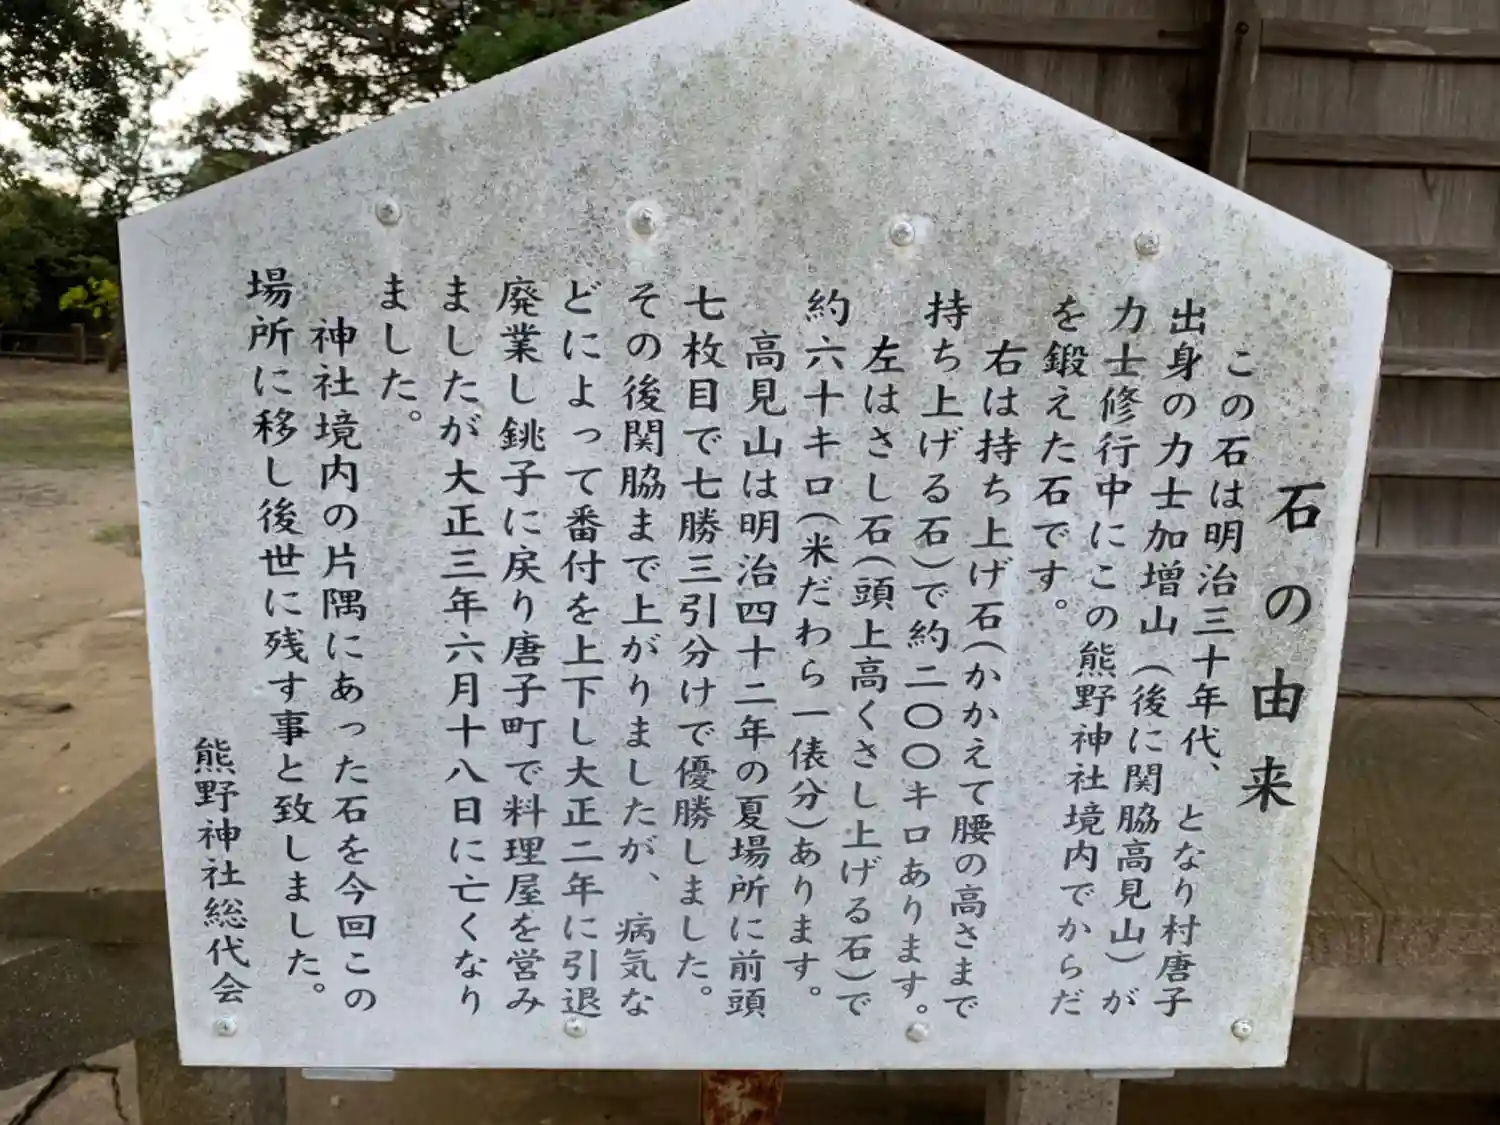 石の由来
この石は明治三十年代、となり村唐子
出身の力士加増山（後に関脇高見山）が
力士修行中にこの熊野神社境内でからだ
を鍛えた石です。
右は持ち上げ石（かかえて腰の高さまで
持ち上げる石）で約二〇〇キロあります。
左はさし石（頭上高くさし上げる石）で
約六十キロ（米だわら一俵分）あります。
高見山は明治四十二年の夏場所に前頭
七枚目で七勝三引分けで優勝しました。
その後関脇まで上がりましたが、病気な
どによって番付を上下し大正二年に引退
廃業し銚子に戻り唐子町で料理屋を営み
ましたが大正三年六月十八日に亡くなり
ました。
神社境内の片隅にあった石を今回この
場所に移し後世に残す事と致しました。
熊野神社総代会